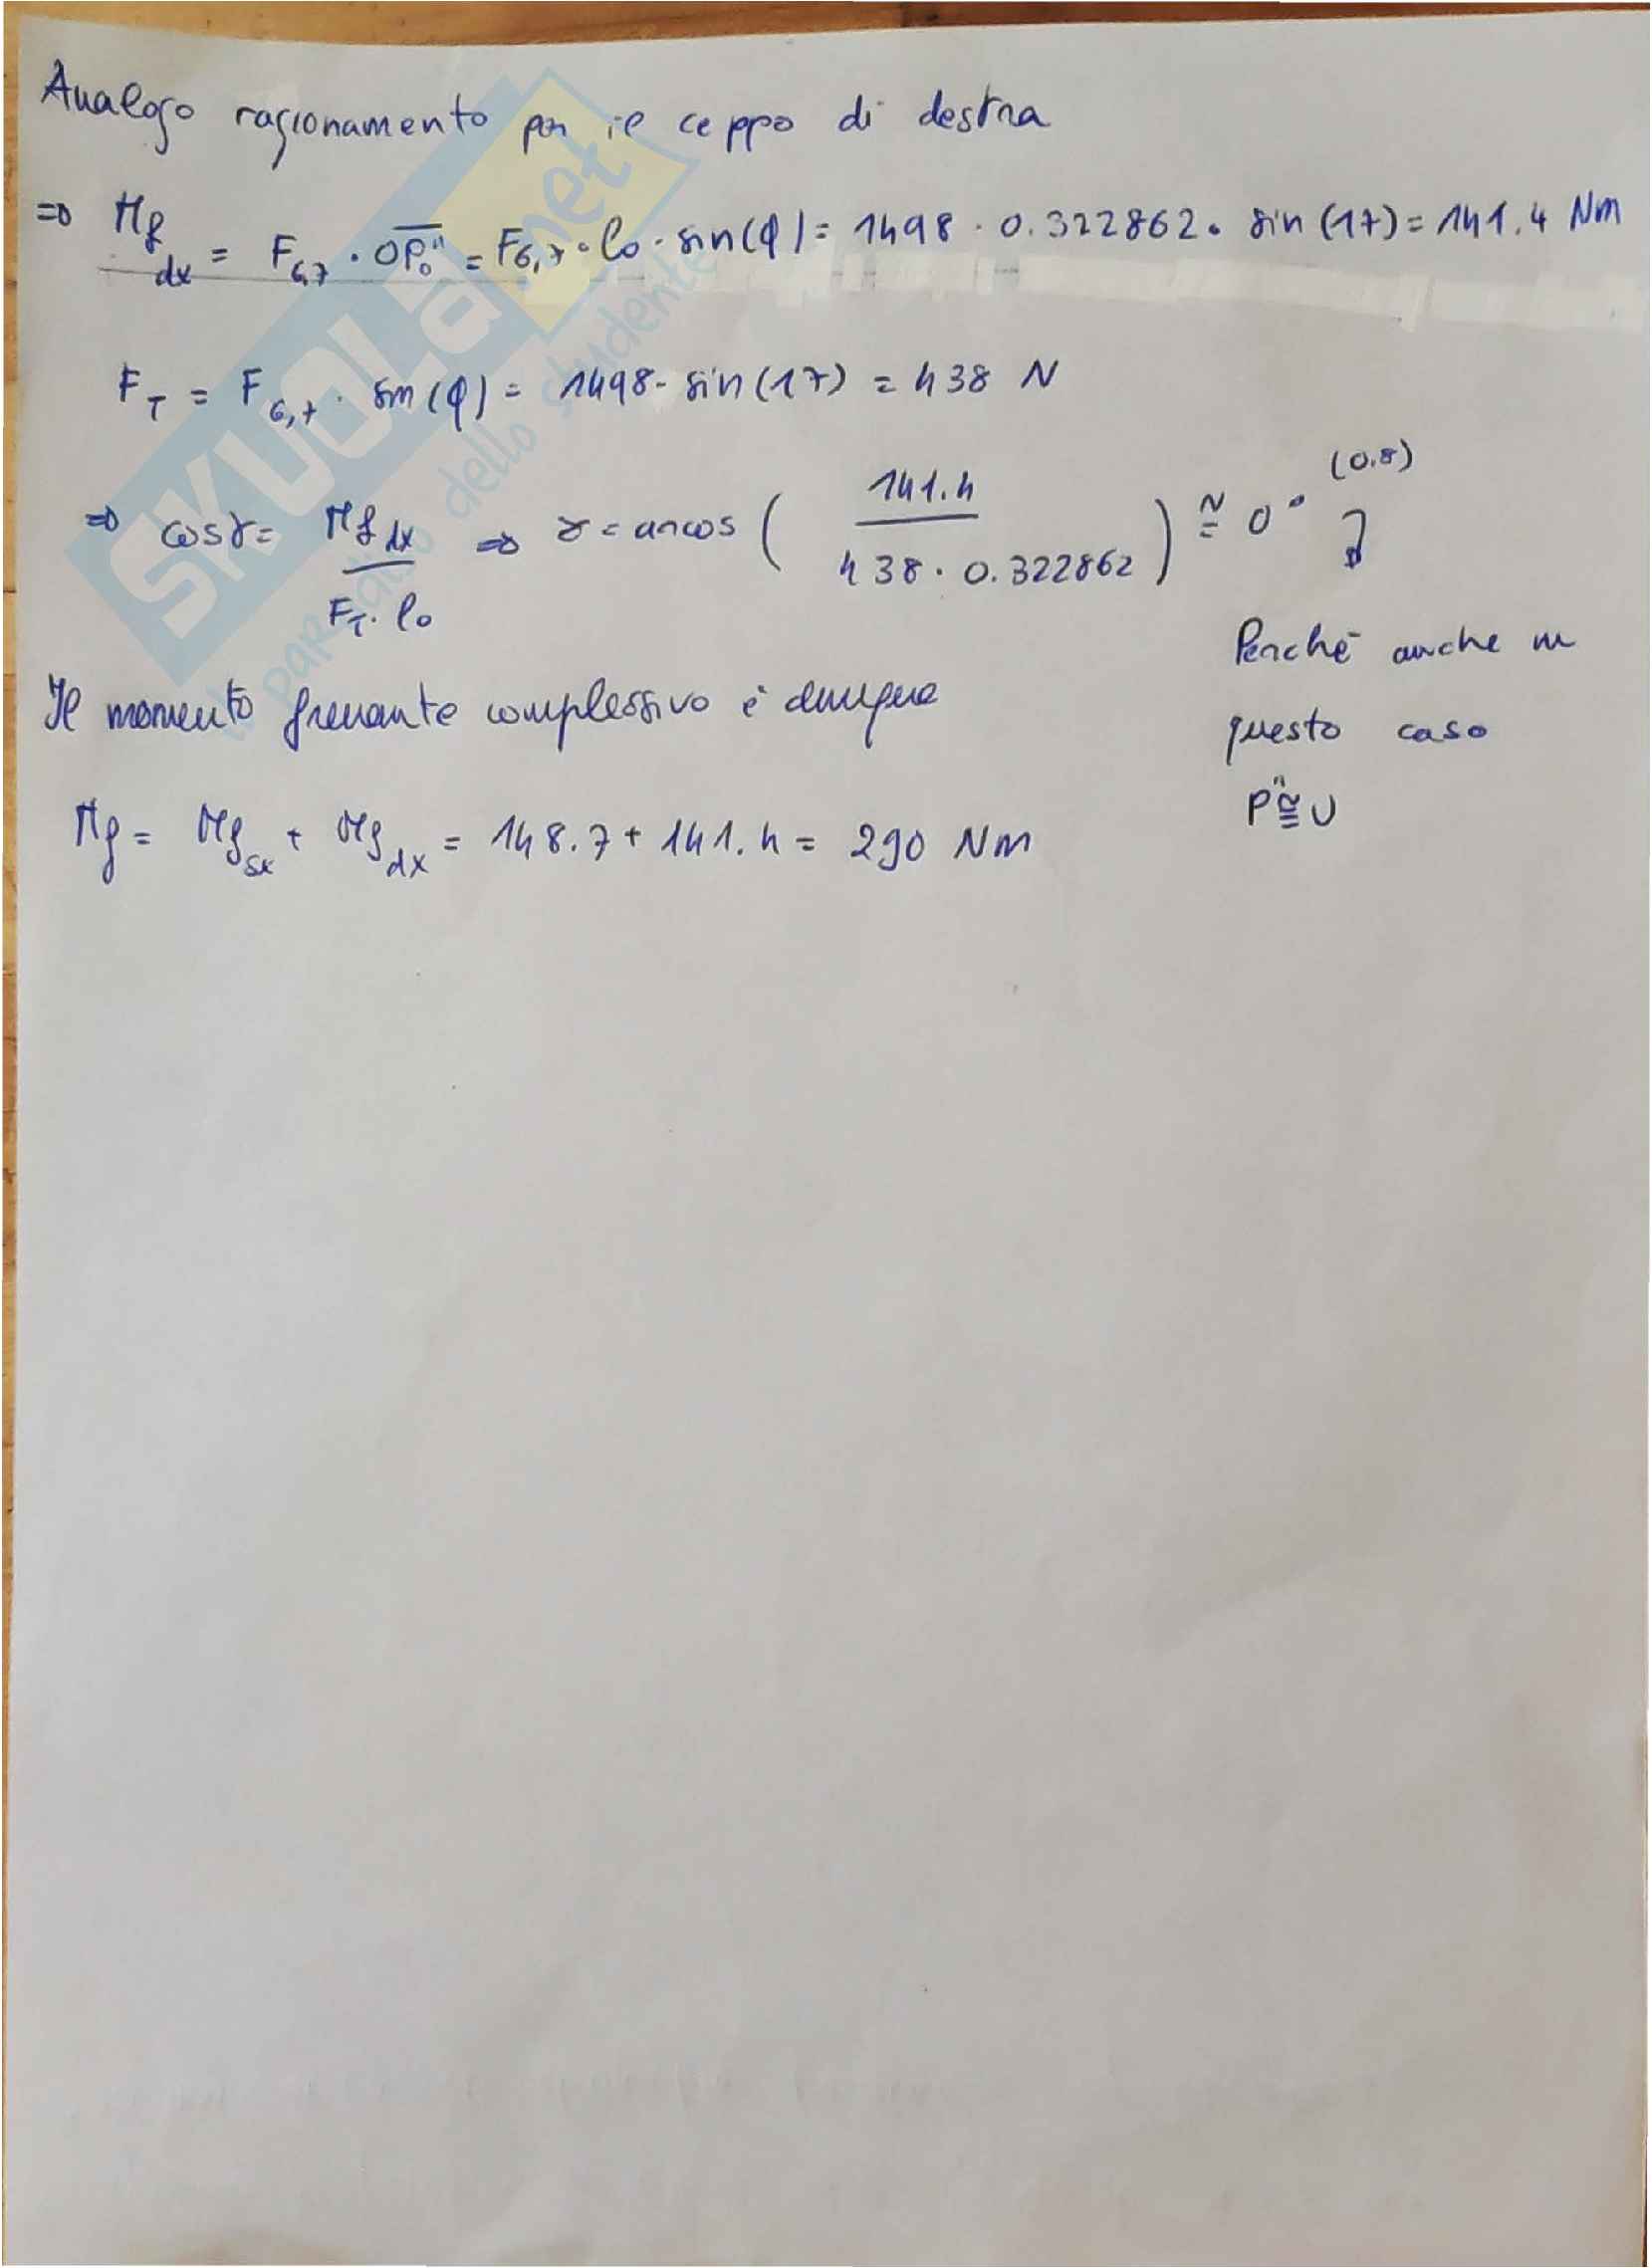 Analogo ragionamento per il ceppo di destra
⇒ Mf dx = F6,7 · OP0" = F6,7 · l0 · sin(φ) = 1498 · 0.322862 · sin(17) = 141.4 Nm
FT = F6,7 · sin(φ) = 1498 · sin(17) = 438 N
⇒ cosγ = Mf dx / FT · l0 ⇒ γ = arcos ( 141.4 / 438 · 0.322862 ) ≅ 0° (0.8)
Perché anche in
questo caso
P" ≅ U
Il momento frenante complessivo è dunque
Mf = Mf sx + Mf dx = 148.7 + 141.4 = 290 Nm
SKUOLA.net
il paradiso dello studente